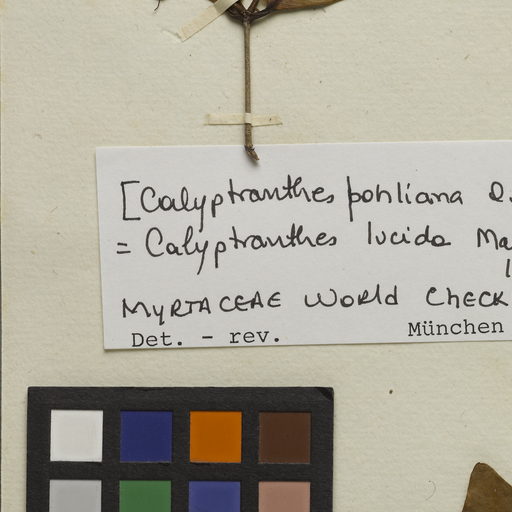 [Calyptranthes pohliana
= Calyptranthes lucida Ma
MYRTACEAE WORLD CHECK
Det. - rev. München